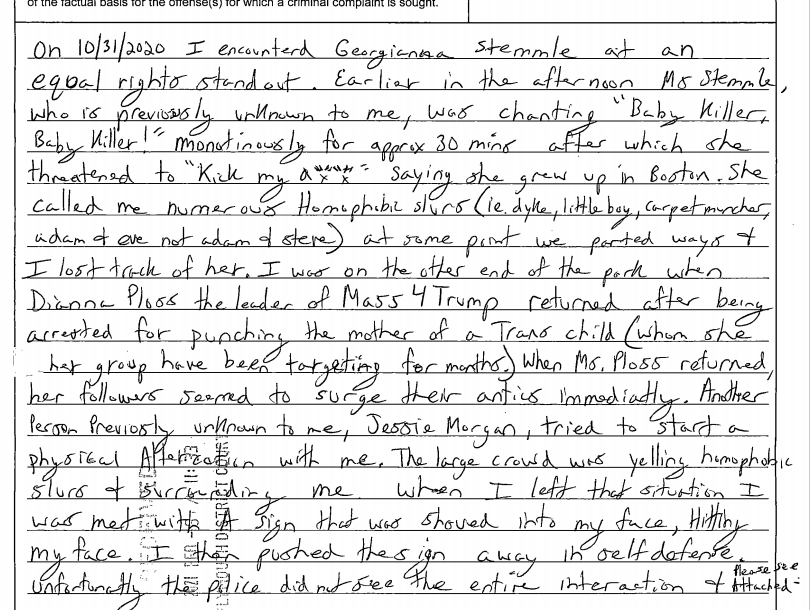 of the factual basis for the offense(s) for which a criminal complaint is sought.
On 10/31/2020 I encounterd Georgianna Stemmle at an
equal rights standout. Earlier in the afternoon Ms Stemmle,
who is previously unknown to me, was chanting "Baby Killer,
Baby Killer!" monotinously for approx 30 mins after which she
threatened to "Kick my a**" saying she grew up in Boston. She
called me numerous Homophobic slurs (ie. dyke, little boy, carpet muncher,
adam & eve not adam & steve) at some point we parted ways &
I lost track of her. I was on the other end of the park when
Dianna Ploss the leader of Mass 4 Trump returned after being
arrested for punching the mother of a Trans child (whom she
her group have been targeting for months.) When Ms. Ploss returned,
her followers seemed to surge their antics immediatly. Another
Person Previosly unknown to me, Jessie Morgan, tried to start a
physical Altercation with me. The large crowd was yelling homophobic
slurs & surrounding me. When I left that situation I
was met with A sign that was shoved into my face, Hitting
my face. I then pushed the sign away in self defense.
Unfortunatly the police did not see the entire interaction &
Please see
Attached-